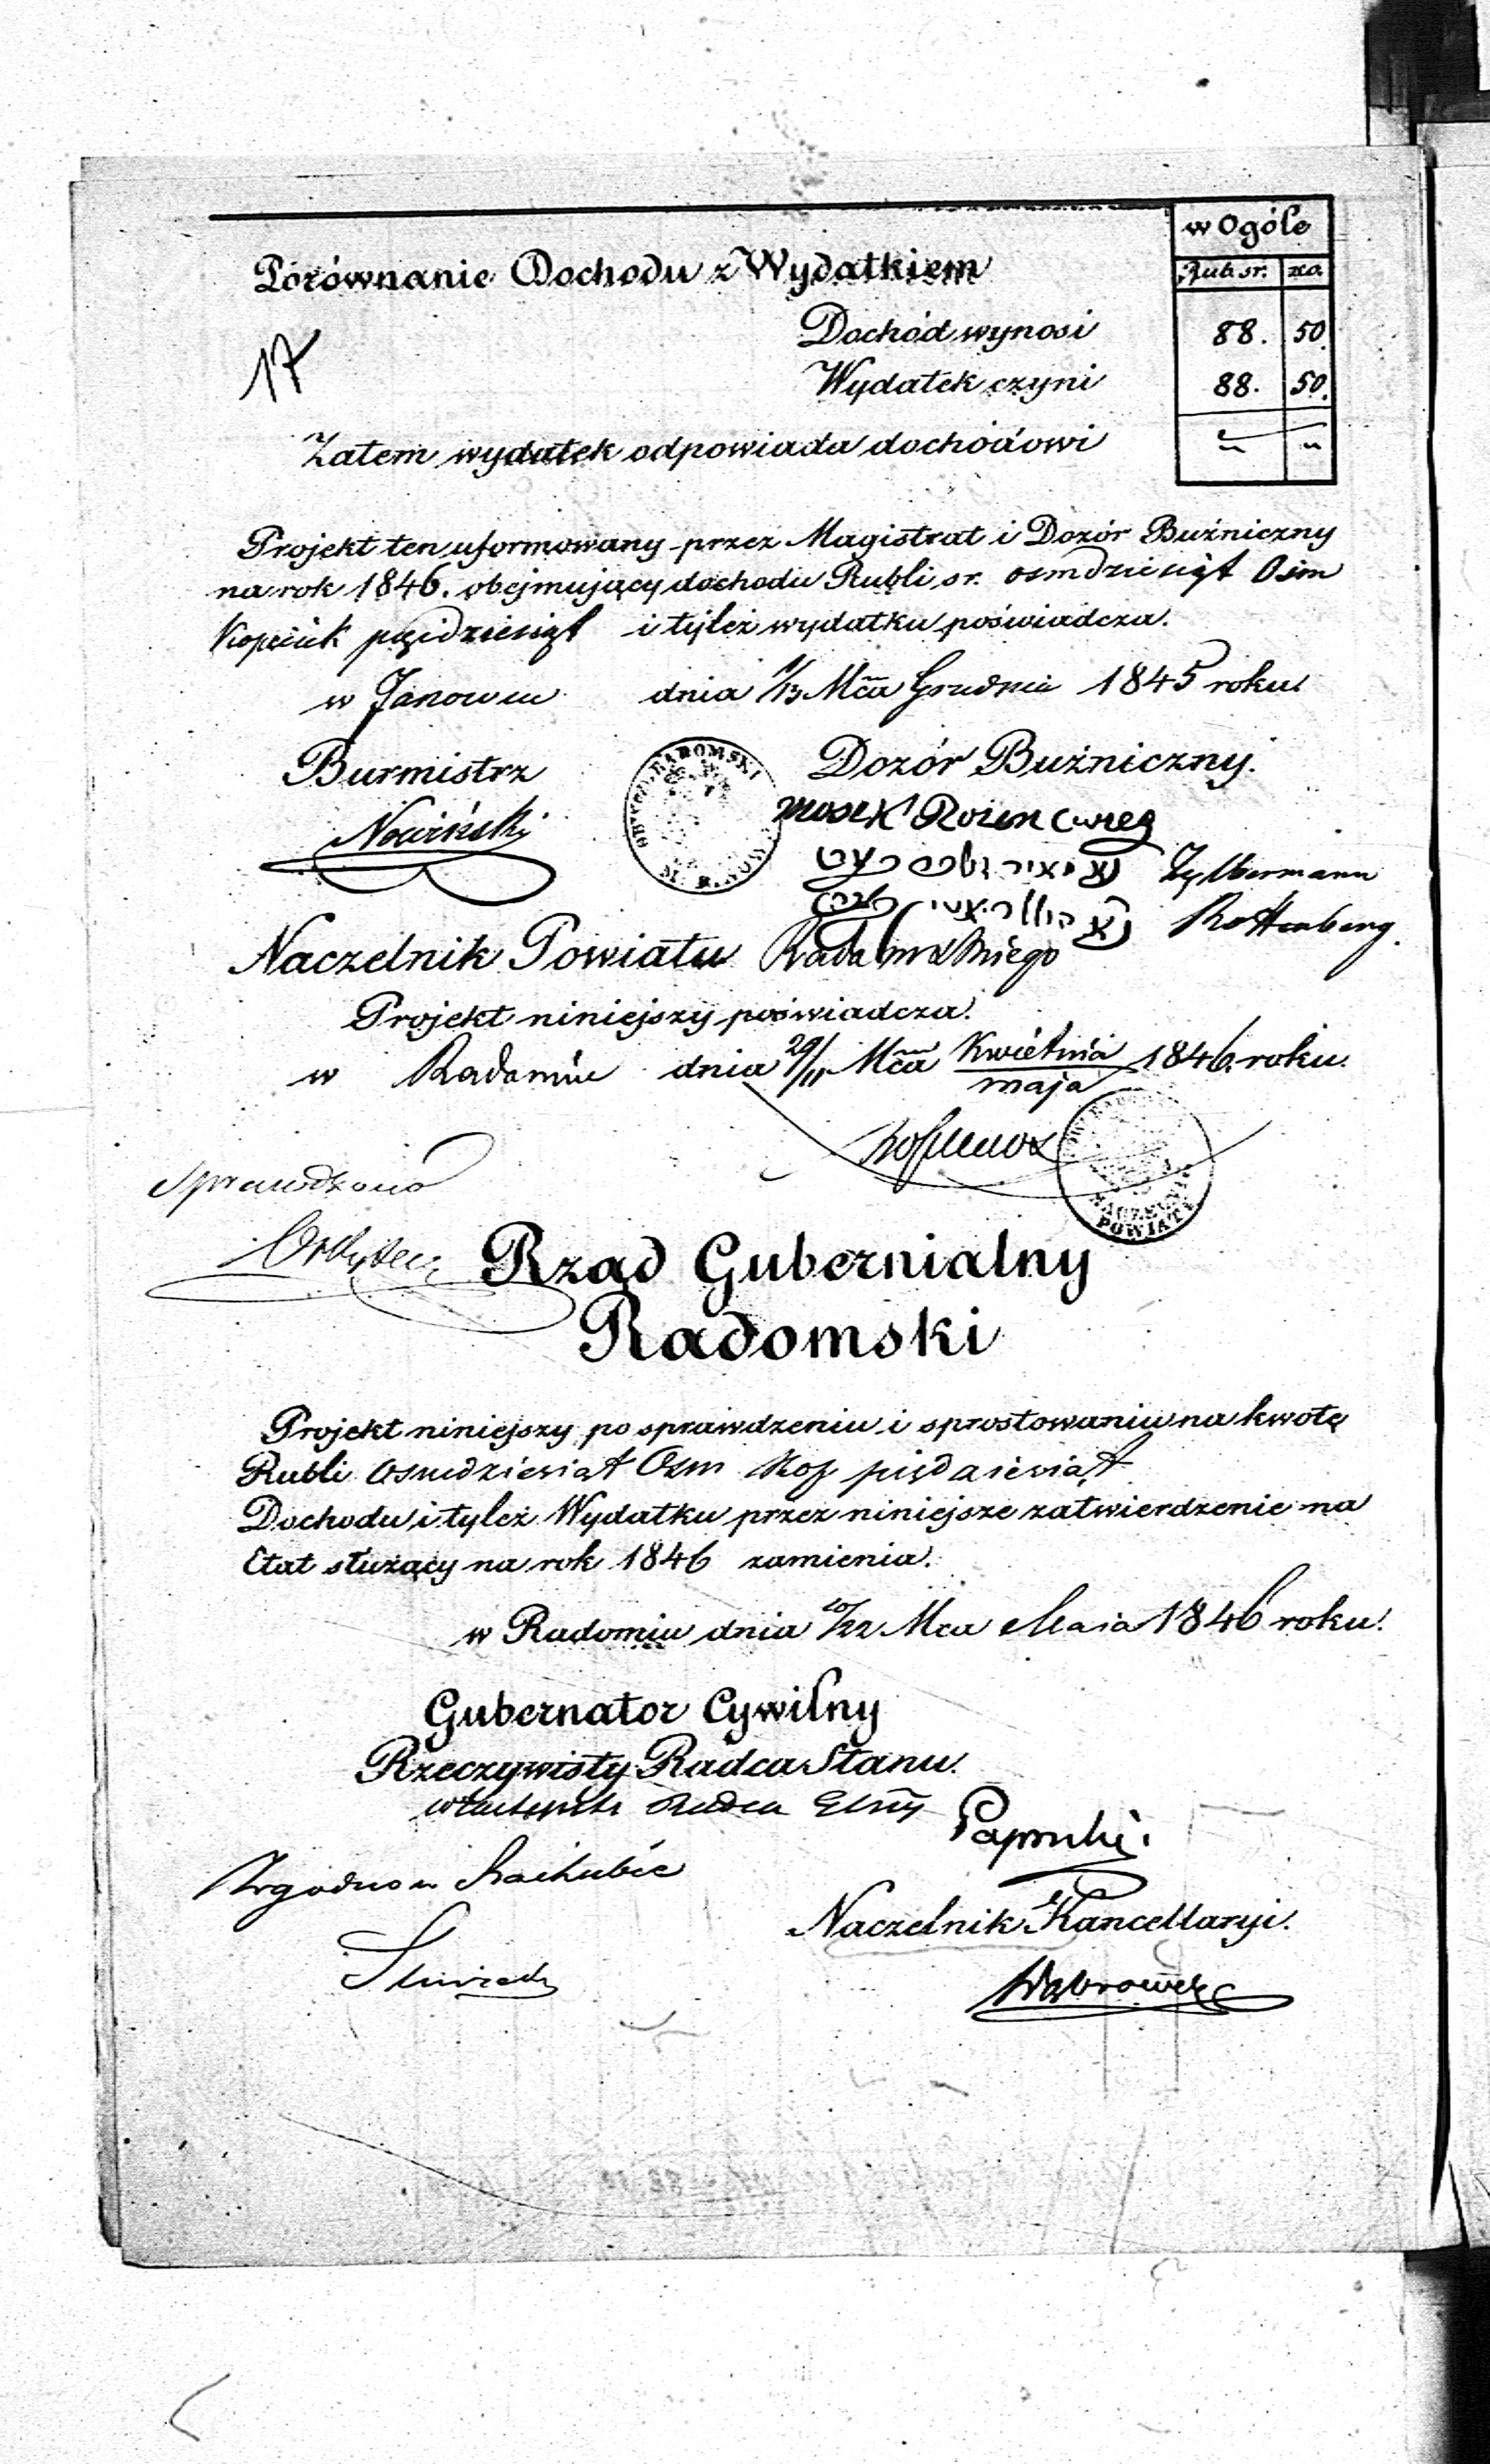 w Ogóle
Porównanie Dochodu z Wydatkiem
Rub. sr. ko.
Dochód wynosi 88. 50.
17
Wydatek czyni 88. 50.
Zatem wydatek odpowiada dochodowi " "
Projekt ten uformowany przez Magistrat i Dozór Bużniczny
na rok 1846. obejmujący dochodu Rubli sr. osmdziesiąt Osim
Kopeiek pięidziesiąt i tyleż wydatku poświadcza.
w Janowcu dnia 1/13 Mca Grudnia 1845 roku.
Burmistrz Dozór Bużniczny.
OBWOD RADOMSKI
Mosek Rozencweg
Nowiński
Zylbermann
Rottenberg.
Naczelnik Powiatu Radomskiego
Projekt niniejszy poświadcza.
w Radomiu dnia 29/11 Mca Kwietnia/maja 1846. roku.
NACZELNIK
POWIATU
Sprawdzono
Rząd Gubernialny
Radomski
Projekt niniejszy po sprawdzeniu i sprostowaniu na kwotę
Rubli Osmdziesiąt Osm Kop pięddziesiąt
Dochodu i tyleż Wydatku przez niniejsze zatwierdzenie na
Etat służący na rok 1846 zamienia.
w Radomiu dnia 10/22 Mca Maia 1846 roku.
Gubernator Cywilny
Rzeczywisty Radca Stanu.
Radca
Paprocki.
Zgodno w Rachubie
Naczelnik Kancellaryi.